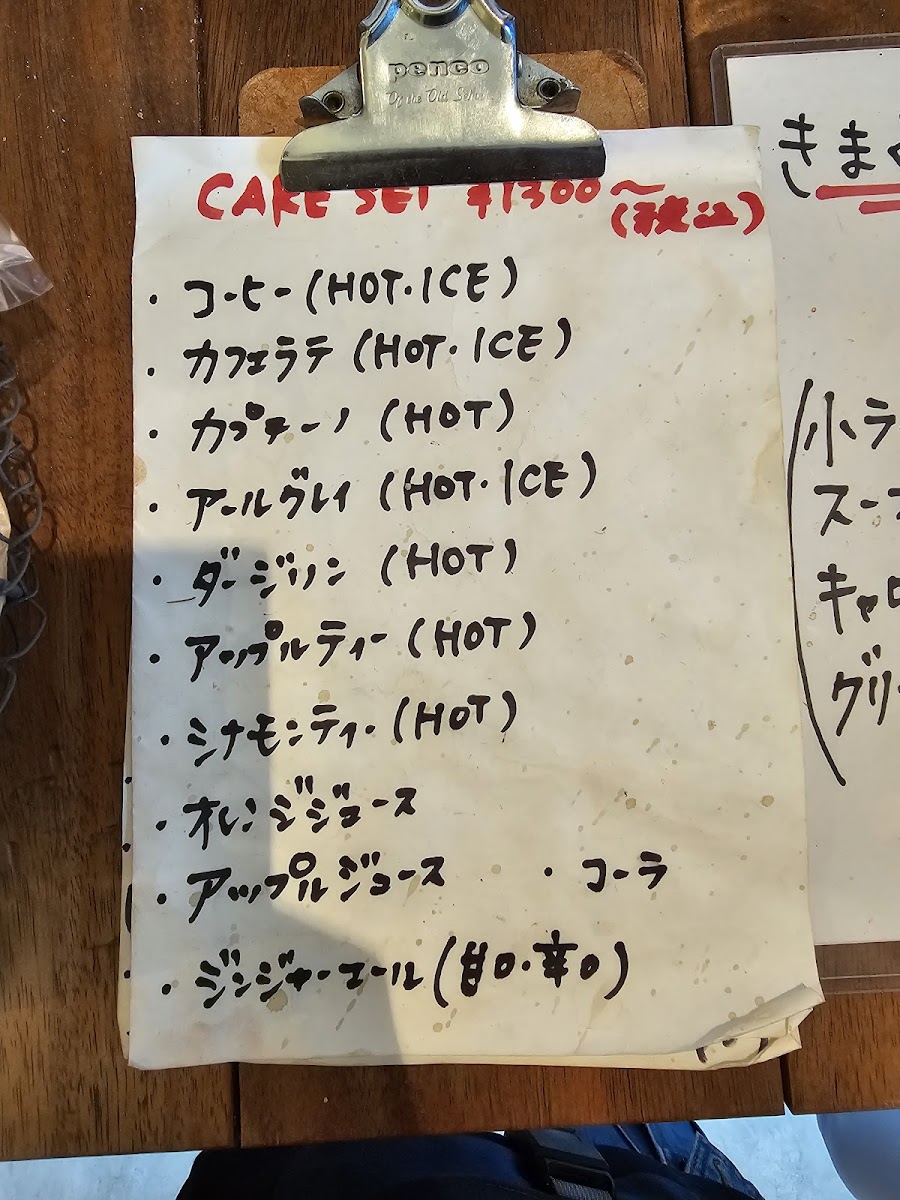 penco
CAKE SET ¥1300~
(税込)
・コーヒー(HOT・ICE)
・カフェラテ (HOT・ICE)
・カプチーノ (HOT)
・アールグレイ (HOT・ICE)
・ダージリン (HOT)
・アップルティー (HOT)
・シナモンティー (HOT)
・オレンジジュース
・アップルジュース ・コーラ
・ジンジャーエール(甘口・辛口)
きま
小ラ
スー
キャロ
グリ